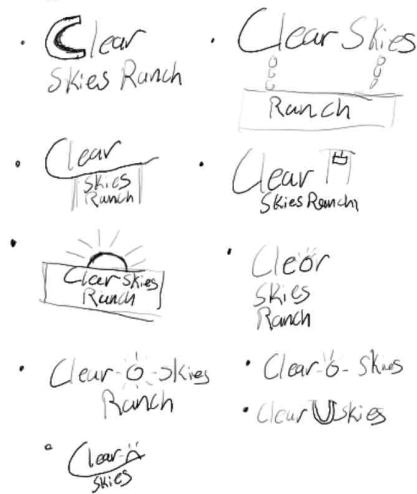 Clear
Skies Ranch
Clear Skies
Ranch
Clear
Skies
Ranch
Clear
Skies Ranch
Clear Skies
Ranch
Clear
Skies
Ranch
Clear Skies
Ranch
Clear Skies
Clear Skies
Clear
Skies